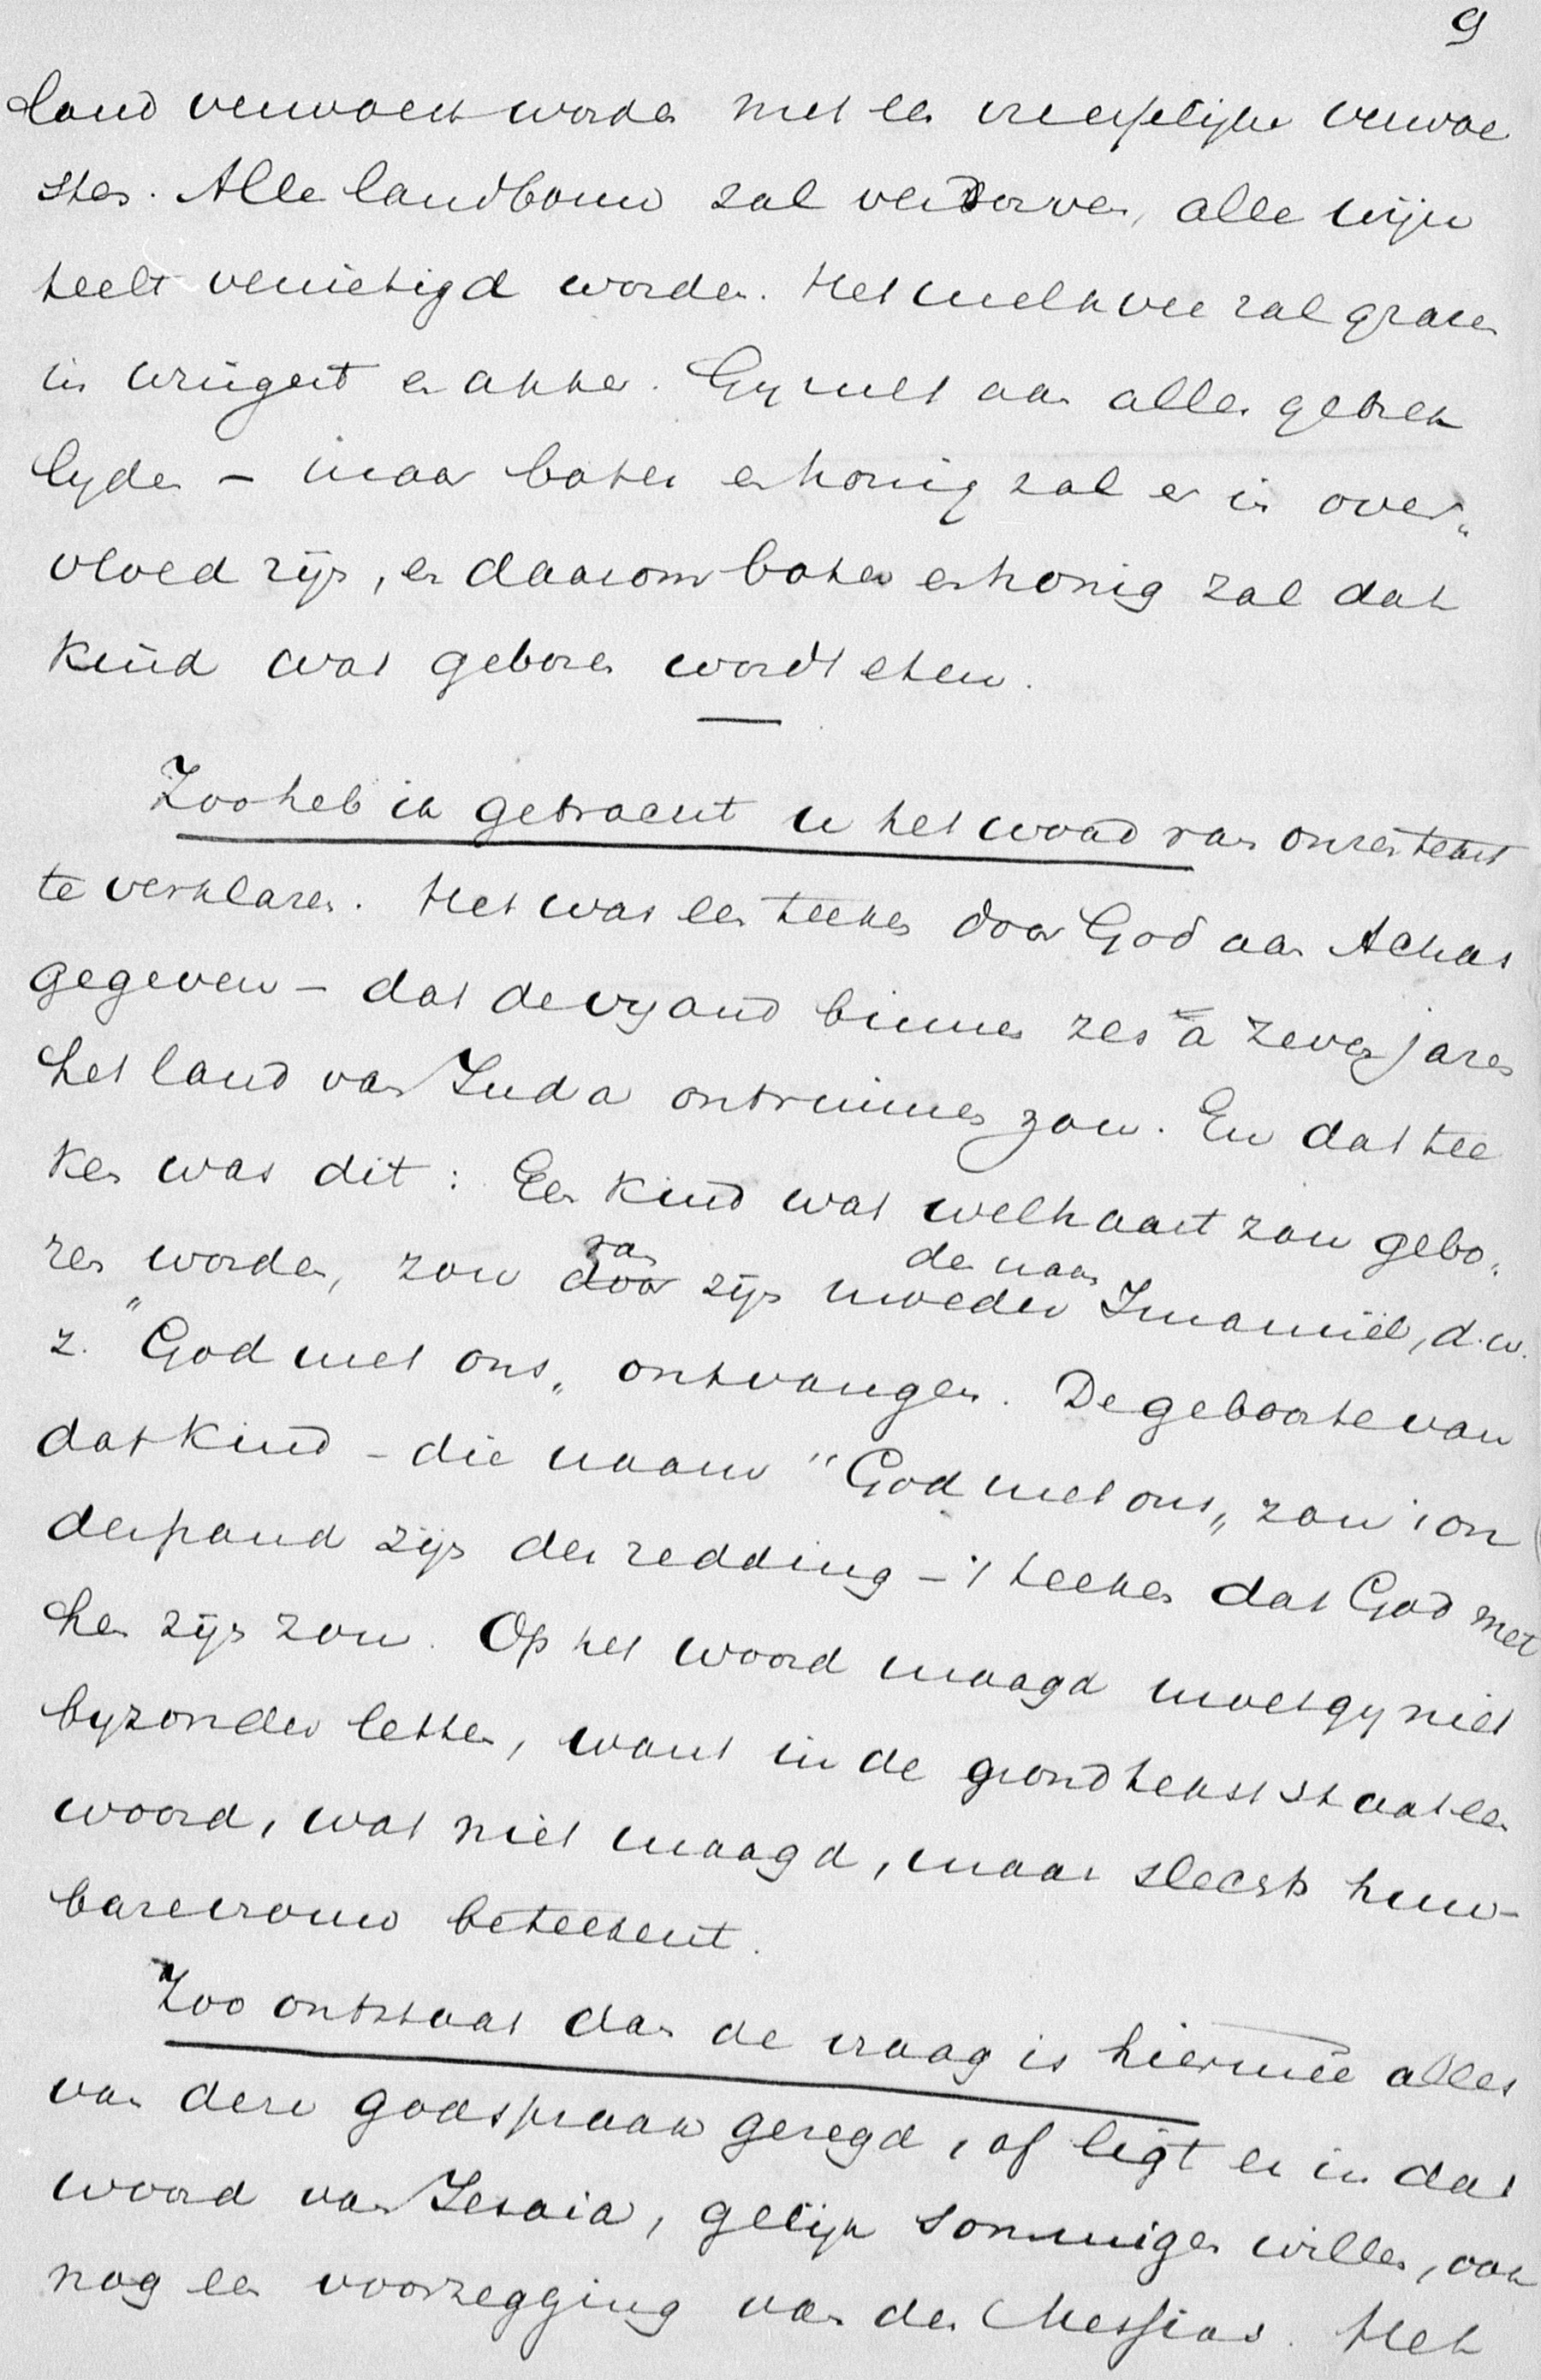 9
land verwoest worden met een vreesselijke verwoe
sten. Alle landbouw zal verderven, alle wijn
teelt vernietigd worden. Het melkvee zal grazen
in wijngert en akker. Gy zult aan alles gebrek
lyden – maar boter en honig zal er in over„
vloed zijn, en daarom boter en honig zal dat
kind wat geboren wordt eten.
Zoo heb ik getracht u het woord van onzen tekst
te verklaren. Het was een teeken door God aan Achas
gegeven – dat de vyand binnen zes à zeven jaren
het land van Juda ontruimen zou. En dat tee
ken was dit: Een kind wat welhaast zou gebo„
ren worden, zou door van zijn moeder den naam Imanuël, d.w.
z. "God met ons„ ontvangen. De geboorte van
dat kind – die naam "God met ons„ zou 't on
derpand zijn der redding – 't teeken dat God met
hen zijn zou. Op het woord maagd moet gy niet
byzonder letten, want in de grondtekst staat een
woord, wat niet maagd, maar slechts huw-
bare vrouw beteekent.
Zoo ontstaat dan de vraag is hiermêe alles
van deze godspraak gezegd, of ligt er in dat
woord van Jesaia, gelijk sommigen willen, ook
nog een voorzegging van den Messias. Het